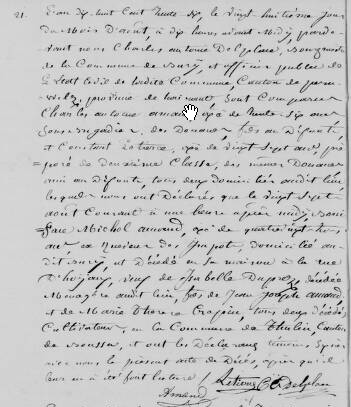 21. L'an dix huit cent trente six, le vingt huitième jour
du Mois d'août, à dix heures avant Midy, pardevant
nous Charles antoine Delplace, Bourgmestre
de la Commune de et officier public de
l'Etat Civil de ladite Commune, Canton de
province de hainaut sont Comparus
Charles antoine amand, agé de trente six ans
Sous Brigadier, des Douanes, fils au Défunt,
et Constant Letienne, agé de vingt sept ans, préposé
de deuxième Classe, des mêmes Douanes
ami au Défunt, tous deux domiciliés audit lieu
lesquels nous ont Déclarés que le vingt sept
août Courant à une heure après midy,
Michel amand, agé de quatre vingt
ans, ex Receveur des Impots, domicilié audit
est Décédé en sa maison à la rue
D' veuf de Isabelle Duprez, décédée
Ménagère audit lieu, fils de Jean Joseph amand,
et de Marie thérèse Crapin, tous deux Décédés
Cultivateurs, en la Commune de thulin, Canton
de Boussu, et ont les Déclarants témoins, Signé
avec nous le présent acte de Décès, après qu'il
leur en a été fait lecture
Letienne C A Delplace
Amand